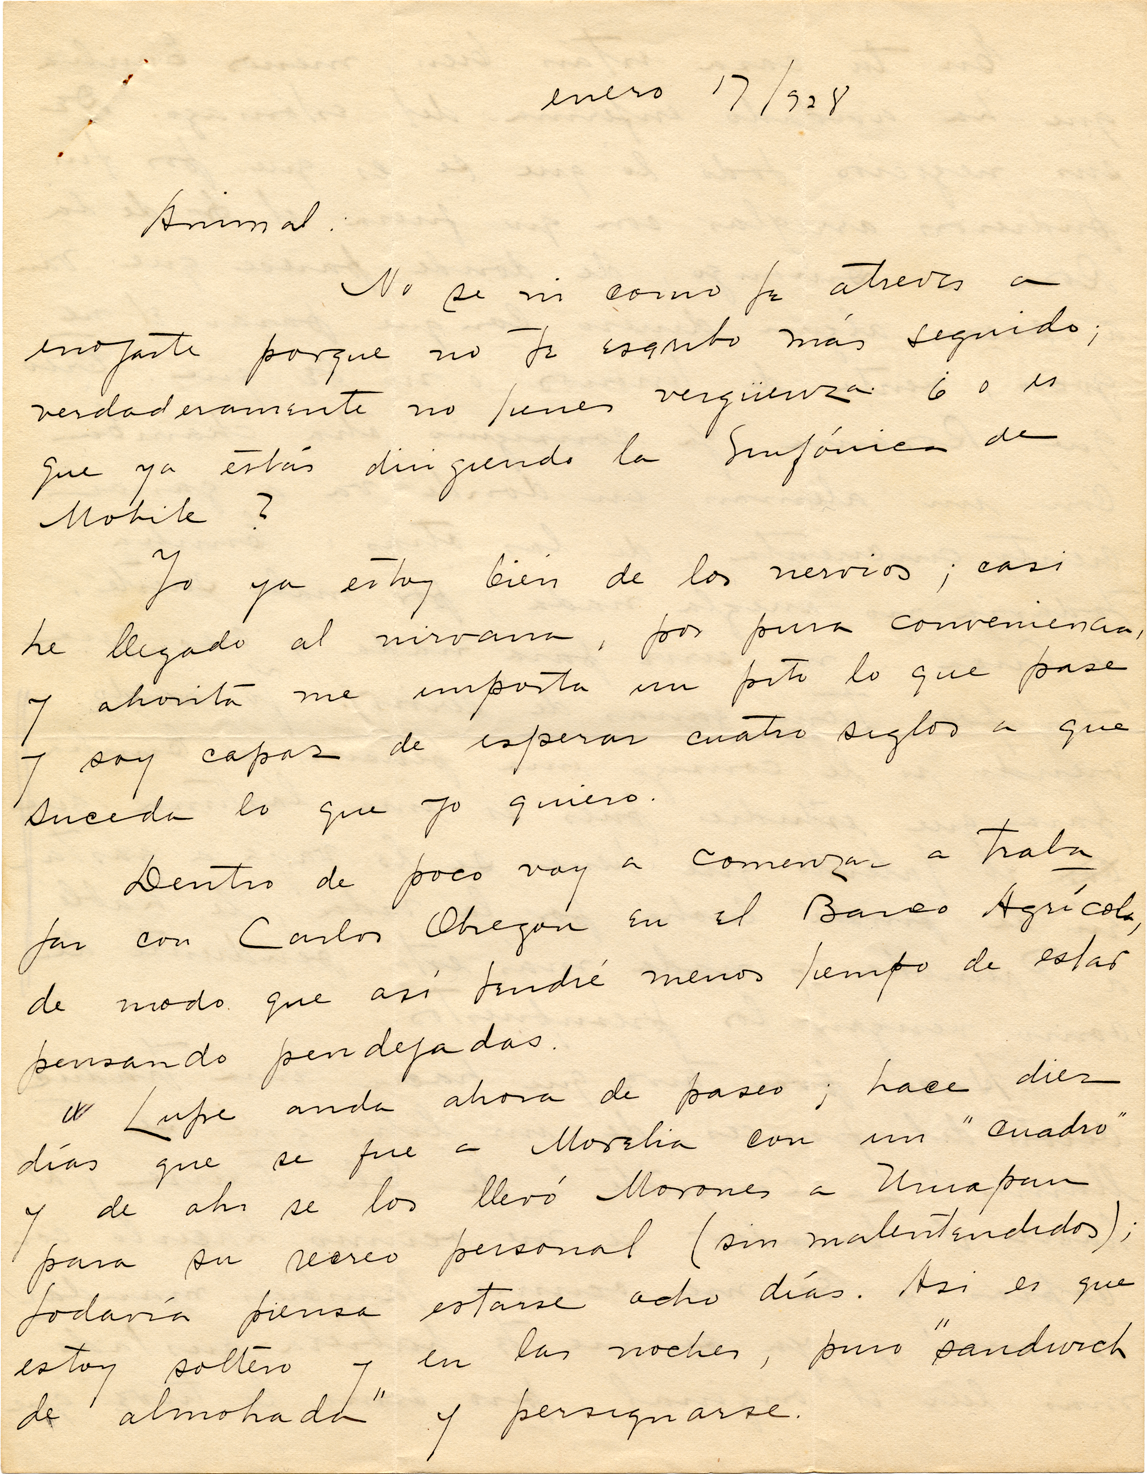 enero 17/928
Animal:
No se ni como te atreves a
enojarte porque no te escribo más seguido;
verdaderamente no tienes vergüenza. ó o es
que ya estás dirigiendo la Sinfónica de
Mobile?
Yo ya estoy bién de los nervios; casi
he llegado al nirvana, por pura conveniencia,
y ahorita me importa un pito lo que pase
y soy capaz de esperar cuatro siglos a que
suceda lo que yo quiero.
Dentro de poco voy a comenzar a traba
jar con Carlos Obregón en el Banco Agrícola,
de modo que así tendré menos tiempo de estar
pensando pendejadas.
Lupe anda ahora de paseo; hace diez
días que se fue a Morelia con un "cuadro"
y de ahi se los llevó Morones a Uruapan
para su recreo personal (sin malentendidos);
todavía piensa estarse ocho días. Asi es que
estoy soltero y en las noches, puro "sandwich
de almohada" y persignarse.